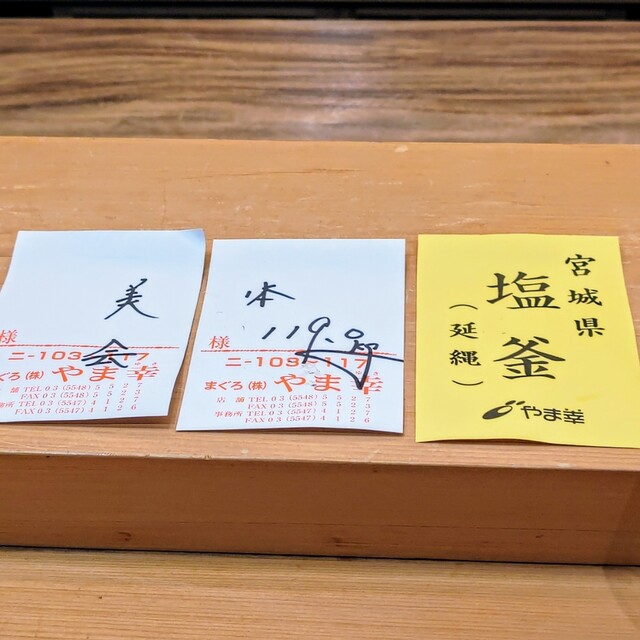 美
会
様
ニ-103~117
ぐろ(株)やま幸
舗 TEL 03(5548)5527
FAX 03(5548)5523
務所 TEL 03(5547)4127
FAX 03(5547)4126
本
119.0kg
様
ニ-103~117
まぐろ(株)やま幸
店 舗 TEL 03(5548)5527
FAX 03(5548)5523
事務所 TEL 03(5547)4127
FAX 03(5547)4126
宮城県
塩釜
(延縄)
やま幸